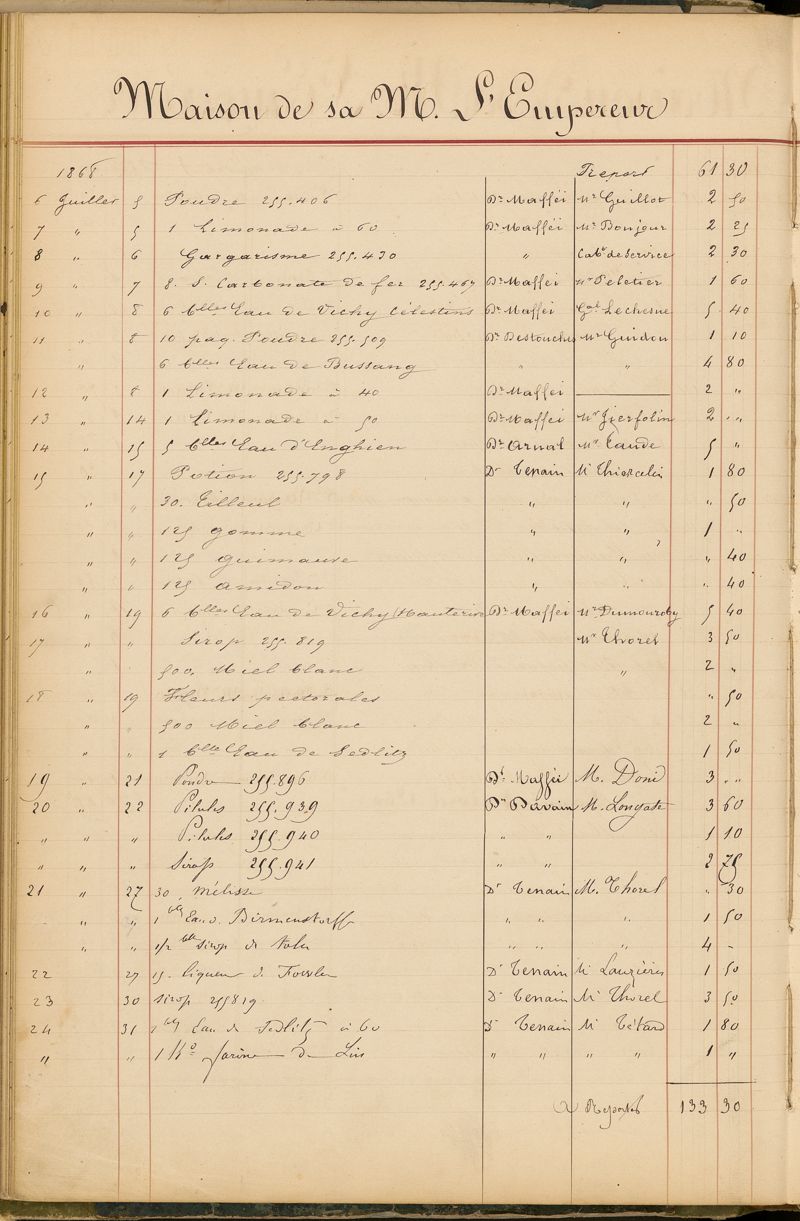 Maison de sa M. L'Empereur
1868 Report 61 30
6 Juillet 5 Poudre 255.406 Dr Mafféi Mr Guillot 2 50
7 " 5 1 Limonade à 60 Dr Mafféi Mr Bonjour 2 25
8 " 6 Gargarisme 255.430 " Cabt de Service 2 30
9 " 7 8. S. Carbonate de fer 255.467 Dr Mafféi Mr Peletier 1 60
10 " 8 6 blles Eau de Vichy Célestins Dr Mafféi Gal Lechesne 5 40
11 " 8 10 paq. Poudre 255.509 Dr Destouches Mr Guidon 1 10
" 6 blles Eau de Bussang " " 4 80
12 " 8 1 Limonade à 40 Dr Mafféi 2 "
13 " 14 1 Limonade à 50 Dr Mafféi Mr 2 "
14 " 15 5 blles Eau d'Enghien Dr Arnal Mr 5 "
15 " 17 Potion 255.798 Dr Tenain Mr Thiercelin 1 80
" " 30. Tilleul " " " 50
" " 125 gomme " " 1 "
" " 125 guimauve " " " 40
" " 125 amidon " " " 40
16 " 19 6 blles Eau de Vichy (Hauterive Dr Mafféi Mr 5 40
17 " " Sirop 255.819 Mr Thorel 3 50
" 500. Miel blanc " 2 "
18 " 19 Fleurs pectorales " 50
" " 500 Miel blanc 2 "
" " 1 blle Eau de Sedlitz 1 50
19 " 21 Poudre 255.896 Dr Mafféi M. 3 "
20 " 22 Pilules 255.939 Dr Davain M. Longate 3 60
" " " Pilules 255.940 " " 1 10
" " " Sirop 255.941 " " 2 75
21 " 27 30 Mélisse Dr Tenain M. Thorel " 30
" " 1 blle Eau d. Birmenstorff " " " 1 50
" " 1/2 blle Sirop de tolu " " " 4 -
22 27 15. liqueur d. Fowler Dr Tenain Mr Lauzières 1 50
23 30 Sirop 255819 Dr Tenain Mr Thorel 3 50
24 31 1 blle Eau de Sedlitz à 60 Dr Tenain Mr Tétard 1 80
" " 1 Ko farine de Lin " " " " 1 "
à Reporter 133 30